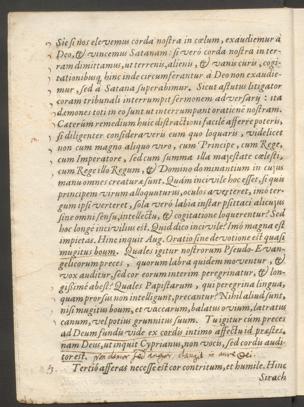 Sic si nos elevemus corda nostra in cœlum, exaudiemur à
Deo, & vincemus Satanam: si verò corda nostra in ter-
ram dimittamus, ut terrenis, alienis, & vanis curis, cogi-
tationibusq; hinc inde circumferantur à Deo non exaudie-
mur, sed à Satana superabimur. Sicut astutus litigator
coram tribunali interrumpit sermonem adversarij: ita
dæmones toti in eo sunt ut interrumpant orationē nostram.
Cæterùm remedium huic distractioni facilè afferre poteris,
si diligenter consideraveris cum quo loquaris, videlicet
non cum magno aliquo viro, cum Principe, cum Rege,
cum Imperatore, sed cum summa illa majestate cœlesti,
cum Rege illo Regum, & Domino dominantium in cujus
manu omnes creaturæ sunt. Quàm incivile hoc esset, si quis
principem virum alloquuturus, oculos averteret, imò ter-
gum ipsi verteret, sola verò labia instar psittaci alicujus
sine omni sensu, intellectu, & cogitatione loquerentur? Sed
hoc longè incivilius est. Quid dico incivile? Imò magna est
impietas. Hinc inquit Aug. Oratio sine devotione est quasi
mugitus boum. Quales igitur nostrorum Pseudo-Evan-
gelicorum preces, quorum labra quidem moventur, &
vox auditur, sed cor eorum interim peregrinatur, & lon-
gissimè abest? Quales Papistarum, qui peregrina lingua,
quam prorsus non intelligunt, precantur? Nihil aliud sunt,
nisi mugitus boum, et vaccarum, balatus ovium, latratus
canum, vel potius grunnitus suum. Tu igitur cùm preces
ad Deum fundis vide ex cordis intimo affectu id præstes,
nam Deus, ut inquit Cyprianus, non vocis, sed cordis audi-
tor est.
3. Tertiò afferas necesse est cor contritum, et humile. Hinc
Sirach